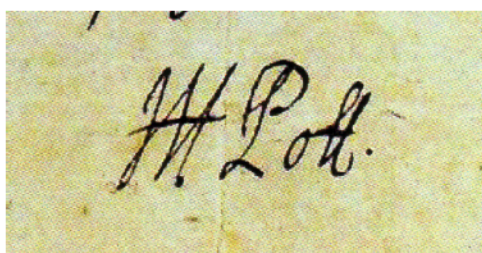 JH. Pott.